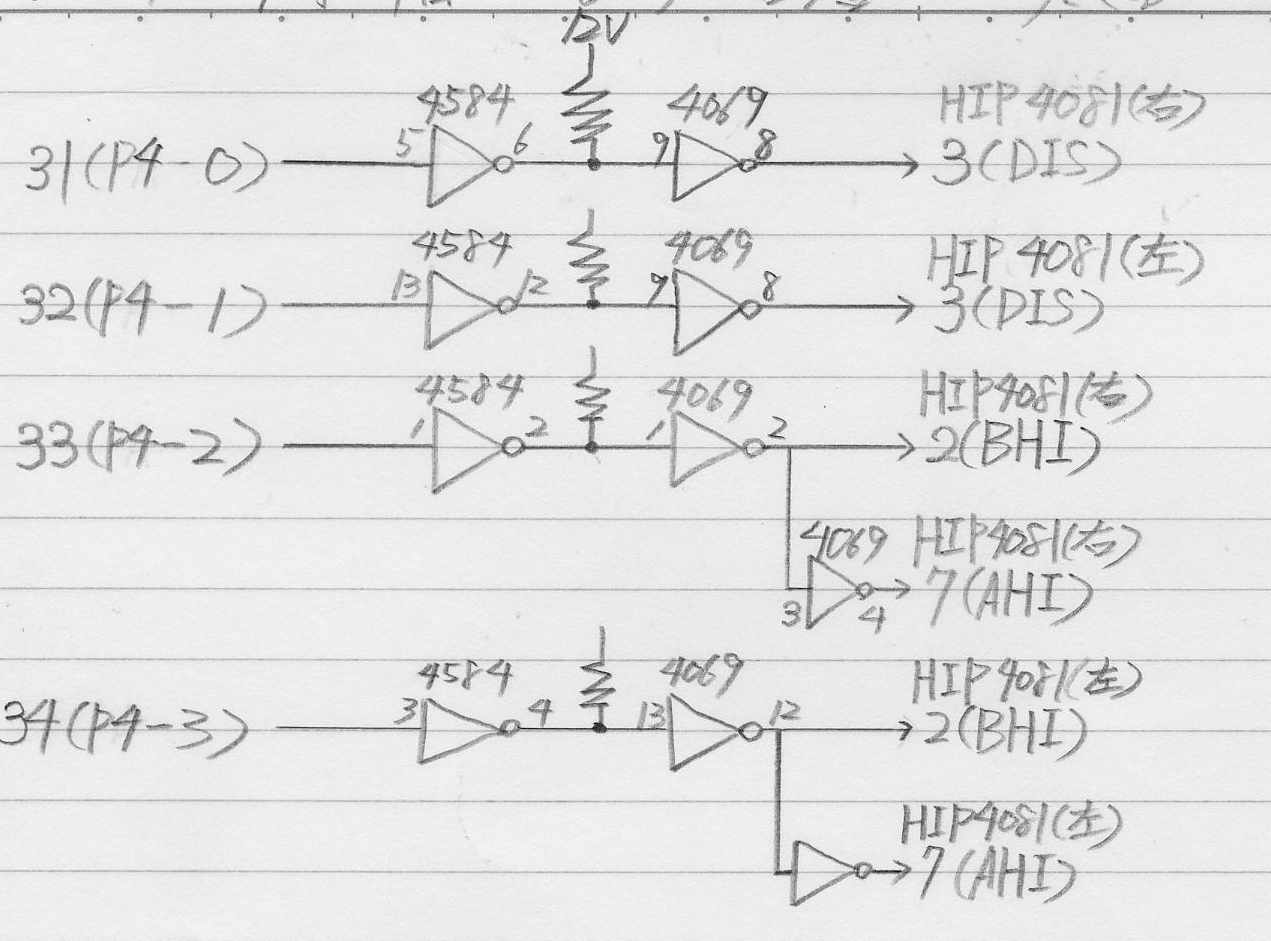 12V
4584 4069 HIP4081(右)
31(P4-0) 5 6 9 8 3(DIS)
4584 4069 HIP4081(左)
32(P4-1) 13 12 9 8 3(DIS)
4584 4069 HIP4081(右)
33(P4-2) 1 2 1 2 2(BHI)
4069 HIP4081(右)
3 4 7(AHI)
4584 4069 HIP4081(左)
34(P4-3) 3 4 13 12 2(BHI)
HIP4081(左)
7(AHI)